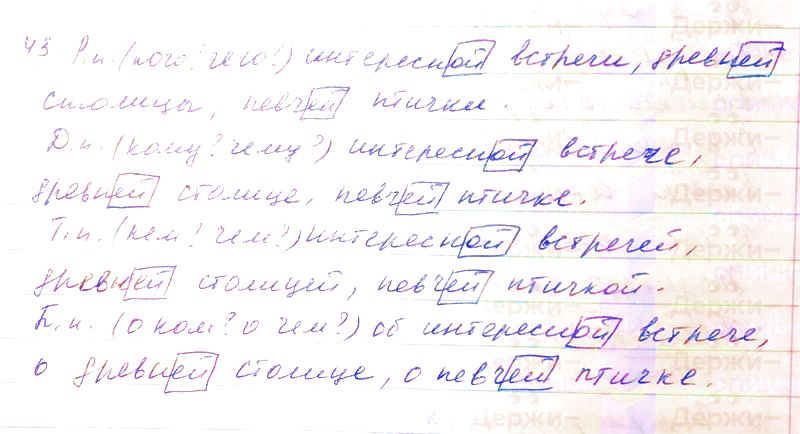 43. Р.п. (кого? чего?) интересной встречи, древней
столицы, певчей птички.
Д.п. (кому? чему?) интересной встрече,
древней столице, певчей птичке.
Т.п. (кем? чем?) интересной встречей,
древней столицей, певчей птичкой.
П.п. (о ком? о чем?) об интересной встрече,
о древней столице, о певчей птичке.
Держи–
Держи–
Держи–
Держи–
Держи–
Держи–
Держи–